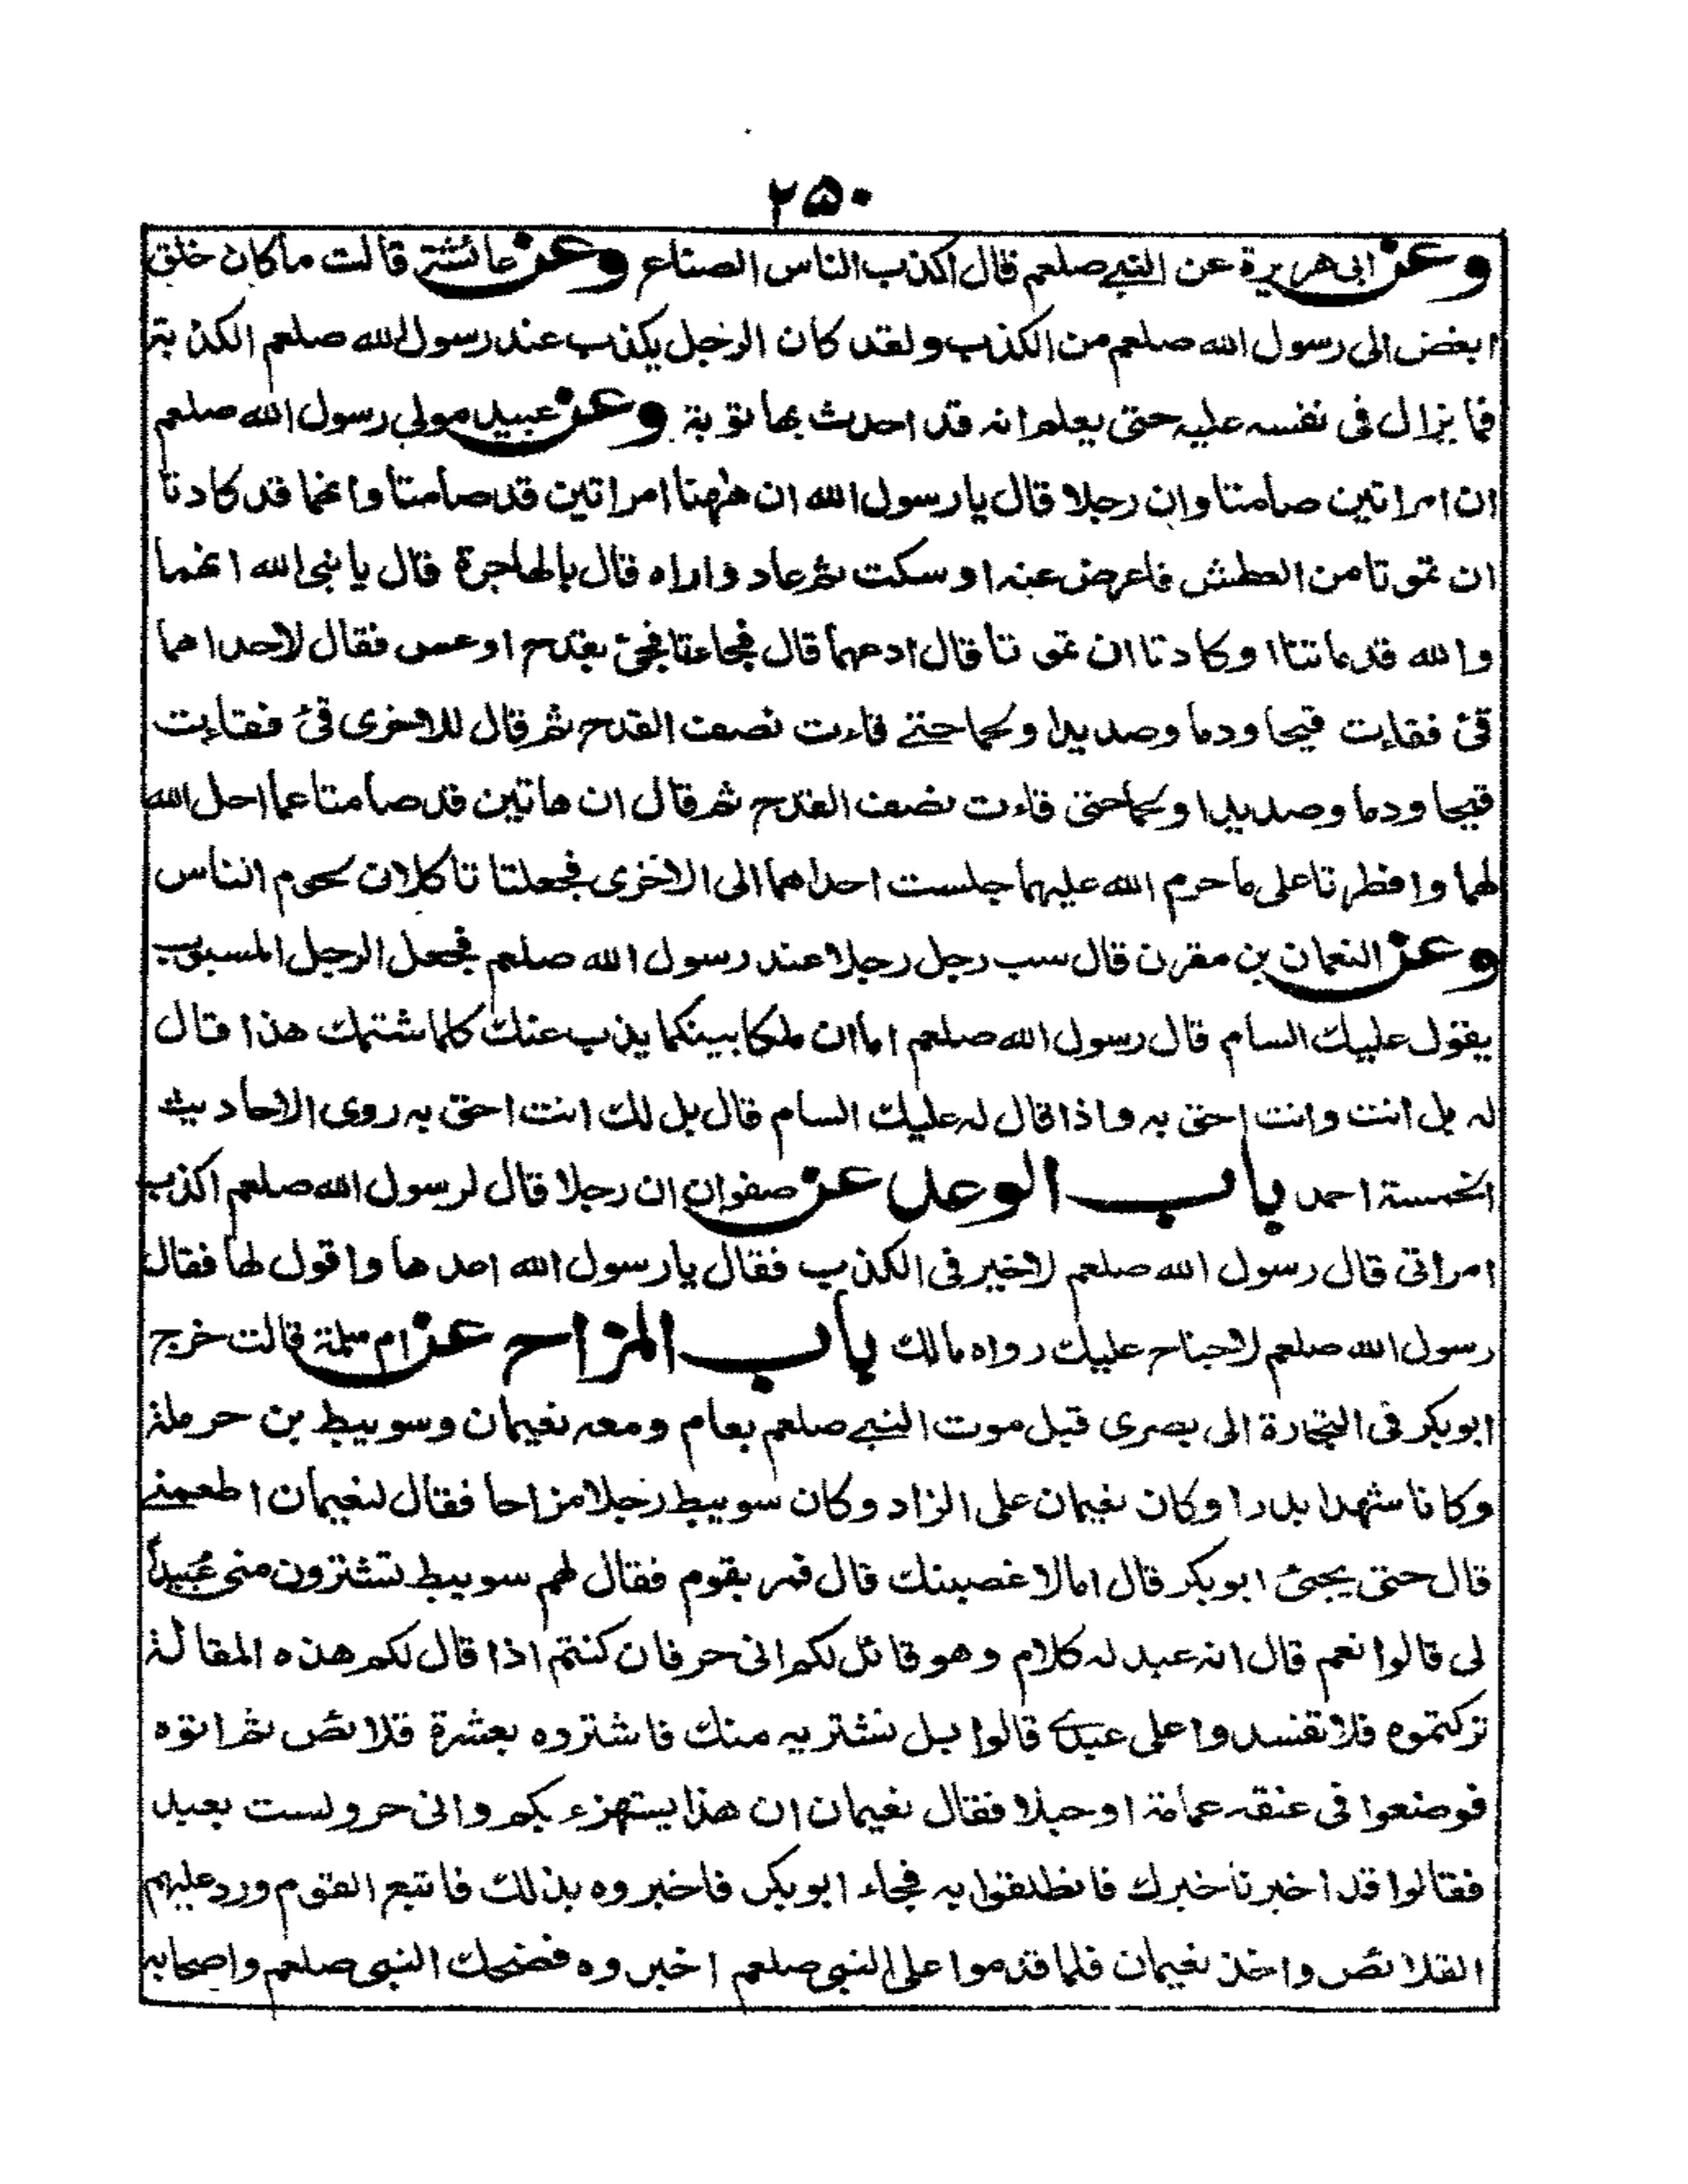 ٢٥٠
وعن ابى هريرة عن النبى صلعم قال اكذب الناس الصناع وعن عائشة قالت ماكان خلق
ابغض الى رسول الله صلعم من الكذب ولقد كان الرجل يكذب عند رسول الله صلعم الكذبة
فما يزال فى نفسه عليه حتى يعلم انه قد احدث بها توبة وعن عبيد مولى رسول الله صلعم
ان امراتين صامتا وان رجلا قال يا رسول الله ان ههنا امراتين قد صامتا وانهما قد كادتا
ان تموتا من العطش فاعرض عنه او سكت ثم عاد واراه قال بالهاجرة قال يا نبى الله انهما
والله قد ماتتا او كادتا ان تموتا قال ادعهما قال فجاءتا فجئ بقدح او عس فقال لاحداهما
قئ فقاءت قيحا ودما وصديدا ولحما حتى قاءت نصف القدح ثم قال للاخرى قئ فقاءت
قيحا ودما وصديدا ولحما حتى قاءت نصف القدح ثم قال ان هاتين قد صامتا عما احل الله
لهما وافطرتا على ما حرم الله عليهما جلست احداهما الى الاخرى فجعلتا تاكلان لحوم الناس
وعن النعمان بن مقرن قال سب رجل رجلا عند رسول الله صلعم فجعل الرجل المسبوب
يقول عليك السام قال رسول الله صلعم اما ان ملكا بينكما يذب عنك كلما شتمك هذا قال
له بل انت وانت احق به واذا قال له عليك السام قال بل لك انت احق به روى الاحاديث
الخمسة احمد باب الوعد عن صفوان ان رجلا قال لرسول الله صلعم اكذب
امراتى قال رسول الله صلعم لا خير فى الكذب فقال يا رسول الله اعدها واقول لها فقال
رسول الله صلعم لا جناح عليك رواه مالك باب المزاح عن ام سلمة قالت خرج
ابوبكر فى التجارة الى بصرى قبل موت النبى صلعم بعام ومعه نعيمان وسويبط بن حرملة
وكانا شهدا بدرا وكان نعيمان على الزاد وكان سويبط رجلا مزاحا فقال لنعيمان اطعمنى
قال حتى يجئ ابوبكر قال اما لاغضبنك قال فمر بقوم فقال لهم سويبط تشترون منى عبيداً
لى قالوا نعم قال انه عبد له كلام وهو قائل لكم انى حر فان كنتم اذا قال لكم هذه المقالة
تركتموه فلا تفسدوا على عبدى قالوا بل نشتريه منك فاشتروه بعشرة قلائص ثم اتوه
فوضعوا فى عنقه عمامة او حبلا فقال نعيمان ان هذا يستهزء بكم وانى حر ولست بعبد
فقالوا قد اخبرنا خبرك فانطلقوا به فجاء ابوبكر فاخبروه بذلك فاتبع القوم ورد عليهم
القلائص واخذ نعيمان فلما قدموا على النبى صلعم اخبروه فضحك النبى صلعم واصحابه